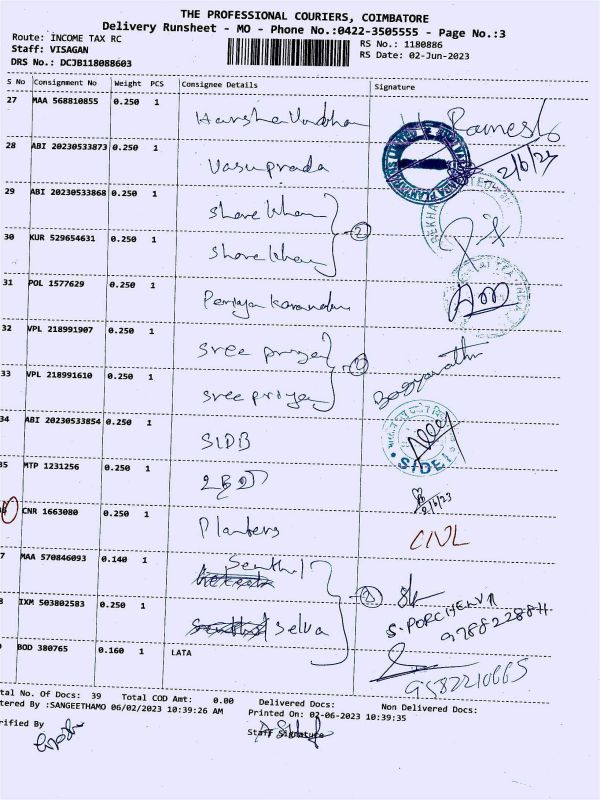 THE PROFESSIONAL COURIERS, COIMBATORE
Delivery Runsheet - MO - Phone No.:0422-3505555 - Page No.:3
Route: INCOME TAX RC RS No.: 1180886
Staff: VISAGAN RS Date: 02-Jun-2023
DRS No.: DCJB118088603
S No Consignment No Weight PCS Consignee Details Signature
27 MAA 568810855 0.250 1 Harshavardhan Ramesh
28 ABI 20230533873 0.250 1 Vasuprada 2/6/23
29 ABI 20230533868 0.250 1 Sharekhan
30 KUR 529654631 0.250 1 Sharekhan
31 POL 1577629 0.250 1 Periya
32 VPL 218991907 0.250 1 Sree priya
33 VPL 218991610 0.250 1 Sree priya
34 ABI 20230533854 0.250 1 SIDB
SIDBI
35 MTP 1231256 0.250 1 2/6/23
CNR 1663080 0.250 1 Planters CIVIL
7 MAA 570846093 0.140 1 Senthil
8 IXM 503802583 0.250 1 Selva S. PORCHELVI
BOD 380765 0.160 1 LATA 9582210665
tal No. Of Docs: 39 Total COD Amt: 0.00 Delivered Docs: Non Delivered Docs:
tered By :SANGEETHAMO 06/02/2023 10:39:26 AM Printed On: 02-06-2023 10:39:35
rified By Staff Signature